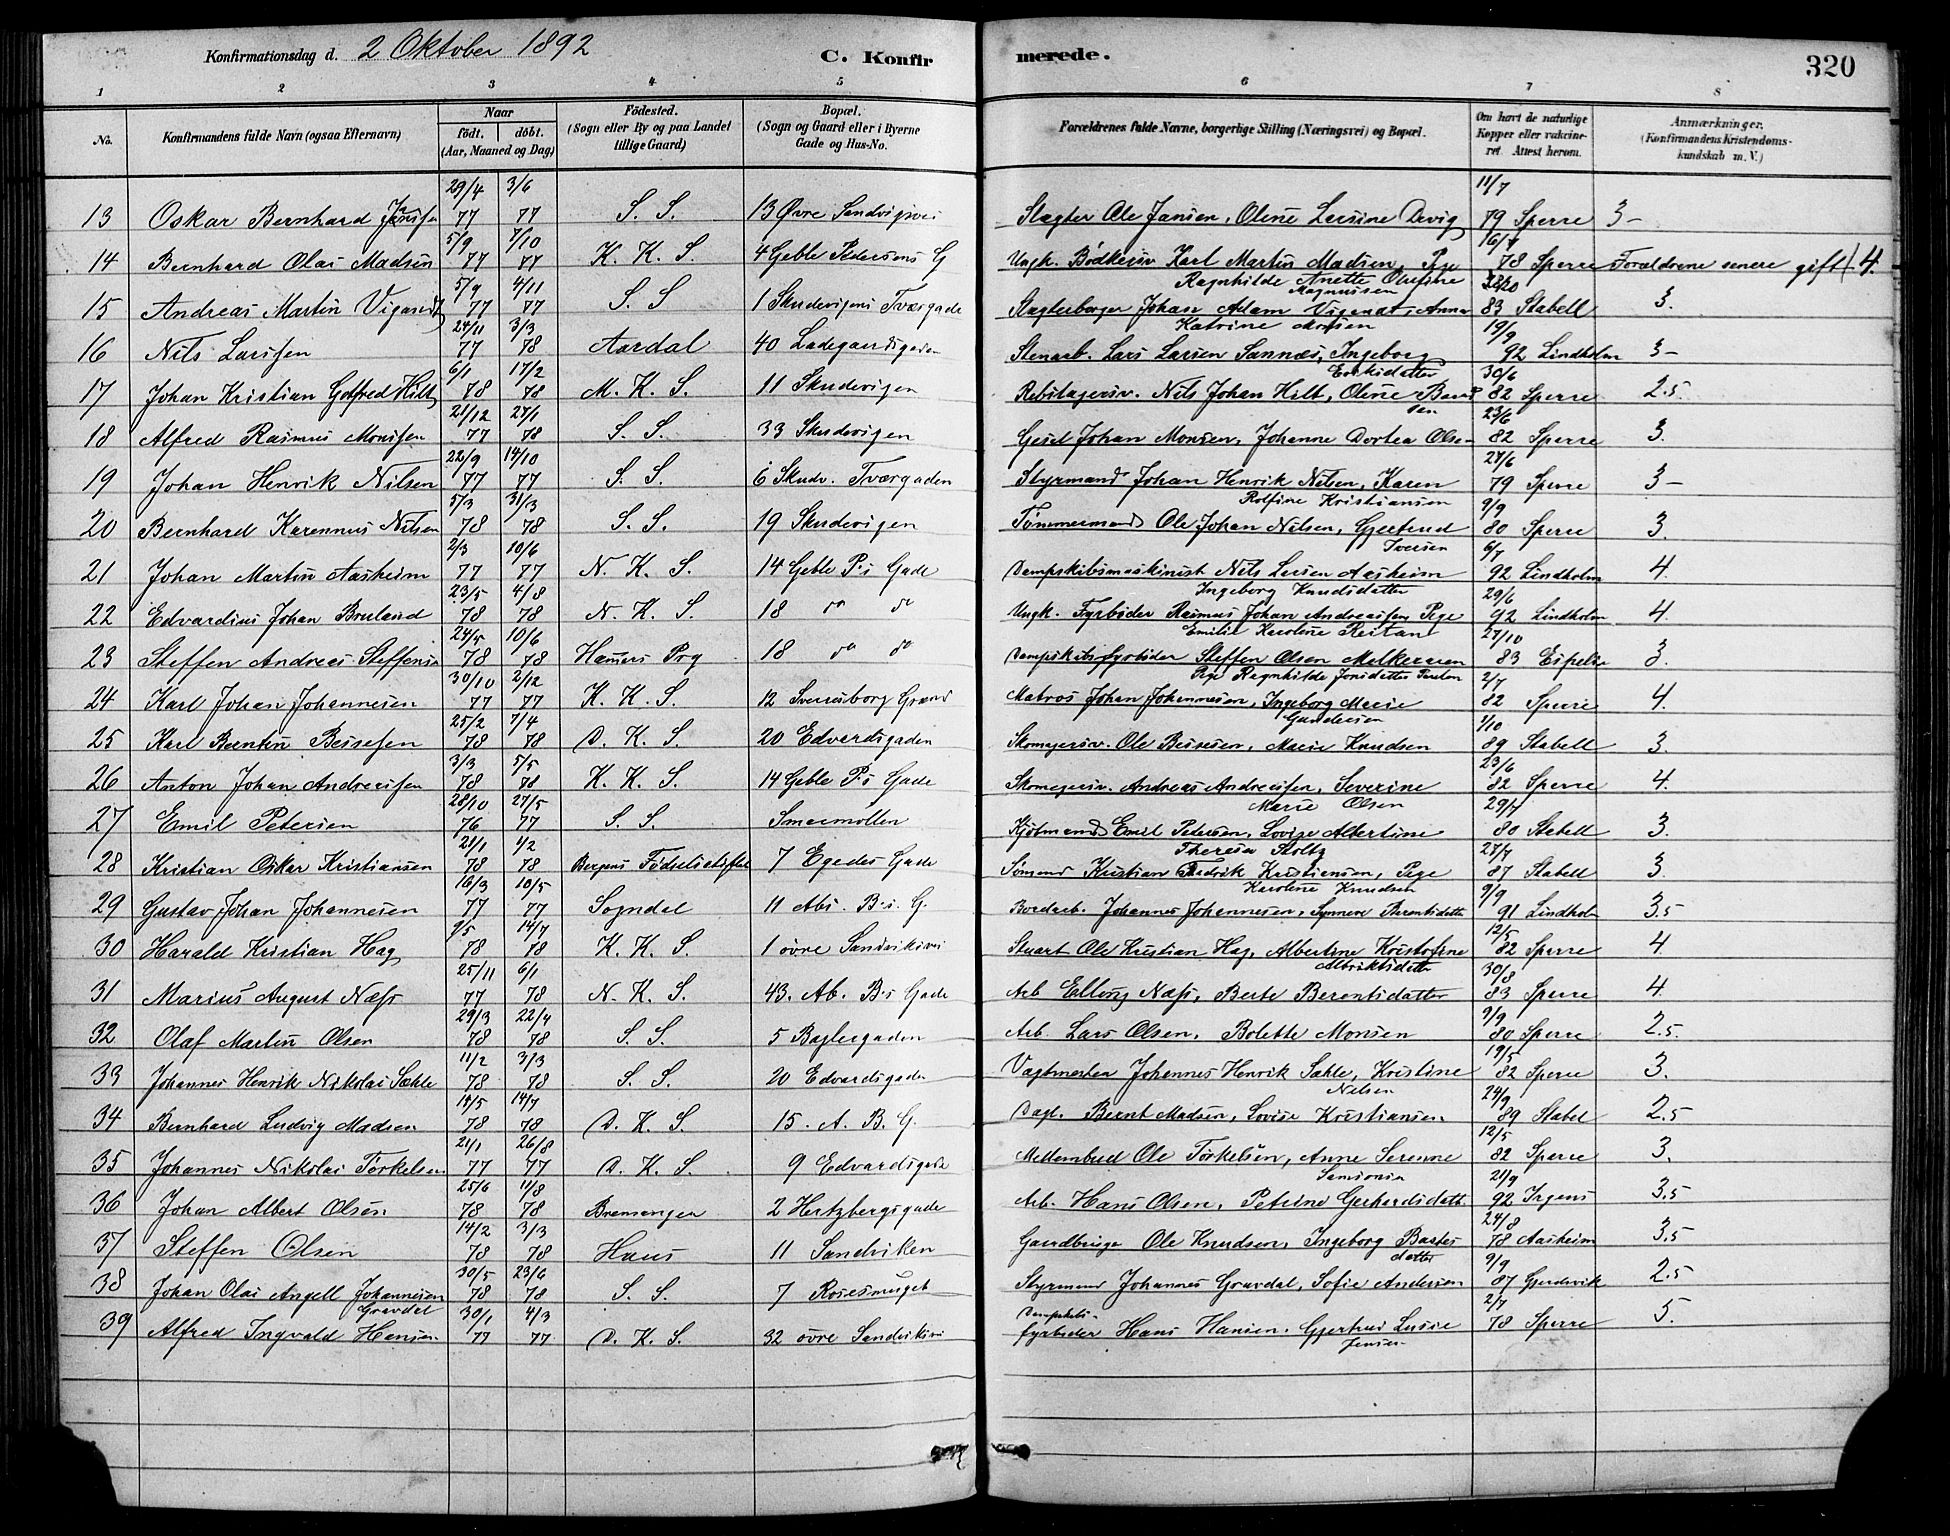 Konfirmationsdag d. 2 Oktober 1892
C. Konfirmerede.
320
1 2 3 4 5 6 7 8
No.
Konfirmandens fulde Navn (ogsaa Efternavn)
Naar
født. døbt.
(Aar, Maaned og Dag)
Fødested.
(Sogn eller By og paa Landet
tillige Gaard)
Bopæl.
(Sogn og Gaard eller i Byerne
Gade og Hus-No.
Forældrenes fulde Navne, borgerlige Stilling (Næringsvei) og Bopæl.
Om havt de naturlige
Kopper eller vakcine-
ret. Attest herom.
Anmærkninger.
(Konfirmandens Kristendoms-
kundskab m. V.)
13 Oskar Bernhard 29/4 77 3/6 77 S. S. 13 Øvre Sandvigsvei Slagter Ole Jansen, Olene Lersine Devig 11/7 79 Sperre 3-
14 Bernhard Olai Madsen 5/9 77 7/10 77 K. K. S. 4 Geble Pedersens G Ungk. Bødkersv Karl Martin Madsen, Pige Ragnhilde Anette Olufine Magnussen 16/7 78 Sperre Forældrene senere gift 4.
15 Andreas Martin Vigandt 5/9 77 4/11 77 S. S 1 Skudevigens Tværgade Slagterborger Johan Adam Vigandt, Anna Katrine 83 Stabell 3.
16 Nils Larssen 24/11 77 3/3 78 Aardal 40 Ladegaardsgaden Stenarb. Lars Larsen Sannæs, Ingeborg Eriksdatter 19/9 92 Lindholm 3-
17 Johan Kristian Gotfred Hilt 6/1 78 17/2 78 M. K. S. 11 Skudevigen Rebslagersv. Nils Johan Hilt, Olene 30/6 82 Sperre 2.5.
18 Alfred Rasmus Monssen 21/12 77 27/1 78 S. S. 33 Skudevigen Gesel Johan Monsen, Johanne Dortea Olsen 23/6 82 Sperre 3.
19 Johan Henrik Nilsen 22/9 77 14/10 77 S. S. 6 Skudv. Tværgaden Styrmand Johan Henrik Nilsen, Karen Rolfine Kristiansen 27/6 79 Sperre 3-
20 Bernhard Karennus Nilsen 5/3 78 31/3 78 S. S. 19 Skudevigen Tømmermand Ole Johan Nilsen, Gjertrud Iversen 9/9 80 Sperre 3.
21 Johan Martin Aasheim 2/3 77 10/6 77 N. K. S. 14 Geble P:s Gade Dampskibsmaskinist Nils Larsen Aasheim Ingeborg Knudsdatter 6/7 92 Lindholm 4.
22 Edvardius Johan Bruland 23/5 78 4/8 78 N. K. S. 18 do do Ungk. Fyrbøder Rasmus Johan Andreassen, Pige Emilie Karoline Reitan 29/6 92 Lindholm 4.
23 Steffen Andreas Steffensen 24/5 78 10/6 78 Hammers Prg 18 do do Dampskibsfyrbøder Steffen Olsen Melkeraaen Pige Ragnhilde Jonsdatter 27/10 83 3.
24 Karl Johan Johannesen 30/10 77 2/12 77 K. K. S. 12 Sverresborg Grænd Matros Johan Johannesen, Ingeborg Marie Gundersen 2/7 82 Sperre 4.
25 Karl Berntin Bessesen 25/2 78 7/4 78 D. K. S. 20 Edvardsgaden Skomagersv. Ole Bessesen, Marie Knudsen 1/10 89 Stabell 3.
26 Anton Johan Andreassen 3/3 78 5/5 78 K. K. S. 14 Geble P:s Gade Skomagersv. Andreas Andreassen, Severine Marie Olsen 23/6 82 Sperre 4.
27 Emil Petersen 28/10 76 27/5 77 S. S. Smaamøllen Kjøbmand Emil Petersen, Lovise Albertine Theresia Stoltz 29/7 80 Stabell 3.
28 Kristian Oskar Kristiansen 21/1 78 1/2 78 Bergens Fødselsstiftelse 7 Egedes Gade Sømand Kristian Fredrik Kristiansen, Pige Karoline Knudsen 27/7 87 Stabell 3.
29 Gustav Johan Johannesen 16/3 77 10/5 77 Sogndal 11 Abs. B:s. G. Bordarb. Johannes Johannesen, Synneve Berentsdatter 9/9 91 Lindholm 3.5
30 Harald Kristian Hag 9/5 78 14/7 78 K. K. S. 1 øvre Sandviksvei Stuart Ole Kristian Hag, Albertine Kristofine Albriktsdatter 12/5 82 Sperre 4
31 Marius August Næss 25/11 77 6/1 78 N. K. S. 43. Ab. B:s Gade Arb Elling Næss, Berte Berentsdatter 30/8 83 Sperre 4.
32 Olaf Martin Olsen 29/3 78 22/4 78 S. S. 5 Baglergaden Arb. Lars Olsen, Bolette Monsen 9/9 80 Sperre 2.5.
33 Johannes Henrik Nikolai Sæhle 11/2 78 3/3 78 S. S. 20 Edvardsgaden Vagtmester Johannes Henrik Sæhle, Kristine Nilsen 19/5 82 Sperre 3.
34 Bernhard Ludvig Madsen 14/5 78 14/7 78 D. K. S. 15. A. B. G. Dagl. Bernt Madsen, Lovise Kristiansen 24/9 89 Stabel 2.5
35 Johannes Nikolai Torkelsen 21/1 77 26/8 77 D. K. S. 9 Edvardsgade Mellembud Ole Torkelsen, Anne Serenne 12/5 82 Sperre 3.
36 Johan Albert Olsen 25/6 78 11/8 78 Bremanger 2 Hertzbergsgade Arb. Hans Olsen, Petrine Gerhardsdatt. 21/9 92 Irgens 3.5
37 Steffen Olsen 14/2 78 3/3 78 Haus 11 Sandviken Gaardbruger Ole Knudsen, Ingeborg datter 24/8 78 Aasheim 3.5
38 Johan Olai Angell Johannesen Gravdal 30/5 78 23/6 78 S. S. 7 Rosesmuget Styrmand Johannes Gravdal, Sofie Andersen 9/9 87 Gjerdevik 2.5
39 Alfred Ingvald Hansen 30/1 77 4/3 77 D. K. S. 32 øvre Sandviksvei Dampskibs-fyrbøder Hans Hansen, Gjertrud Lusie Jensen 2/7 78 Sperre 5.